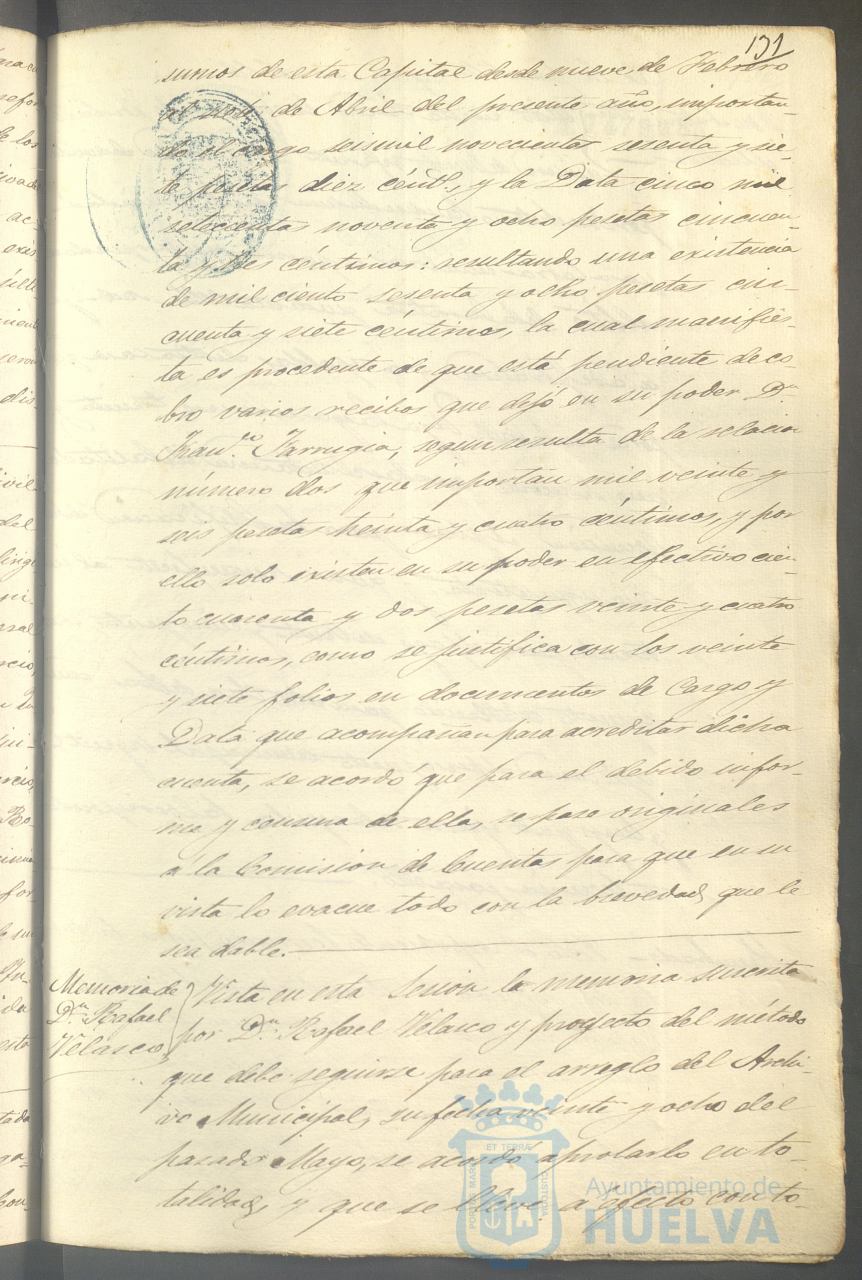 131
sumos de esta Capital desde nueve de Febrero
de Abril del presente año, importan-
do el cargo seismil novecientas sesenta y sie-
te pesetas diez cént.s, y la Data cinco mil
setecientas noventa y ocho pesetas cincuen-
ta y tres céntimos: resultando una existencia
de mil ciento sesenta y ocho pesetas cin-
cuenta y siete céntimos, la cual manifies-
ta es procedente de que está pendiente de co-
bro varios recibos que dejó en su poder D.n
Fran.co Farrugia, segun resulta de la relacion
número dos que importan mil veinte y
seis pesetas treinta y cuatro céntimos, y por
ello solo existen en su poder en efectivo cien-
to cuarenta y dos pesetas veinte y cuatro
céntimos, como se justifica con los veinte
y siete folios en documentos de Cargo y
Data que acompañan para acreditar dicha
cuenta, se acordó que para el debido infor-
me y censura de ella, se pase originales
á la Comision de Cuentas para que en su
vista lo evacue todo con la brevedad que le
sea dable.
Memoria de
D.n Rafael
Velasco
Vista en esta Sesion la memoria suscrita
por D.n Rafael Velasco y proyecto del método
que debe seguirse para el arreglo del Archi-
vo Municipal, su fecha veinte y ocho del
pasado Mayo, se acordó aprobarlo en to-
talidad, y que se lleve a efecto con to-
Ayuntamiento de
HUELVA